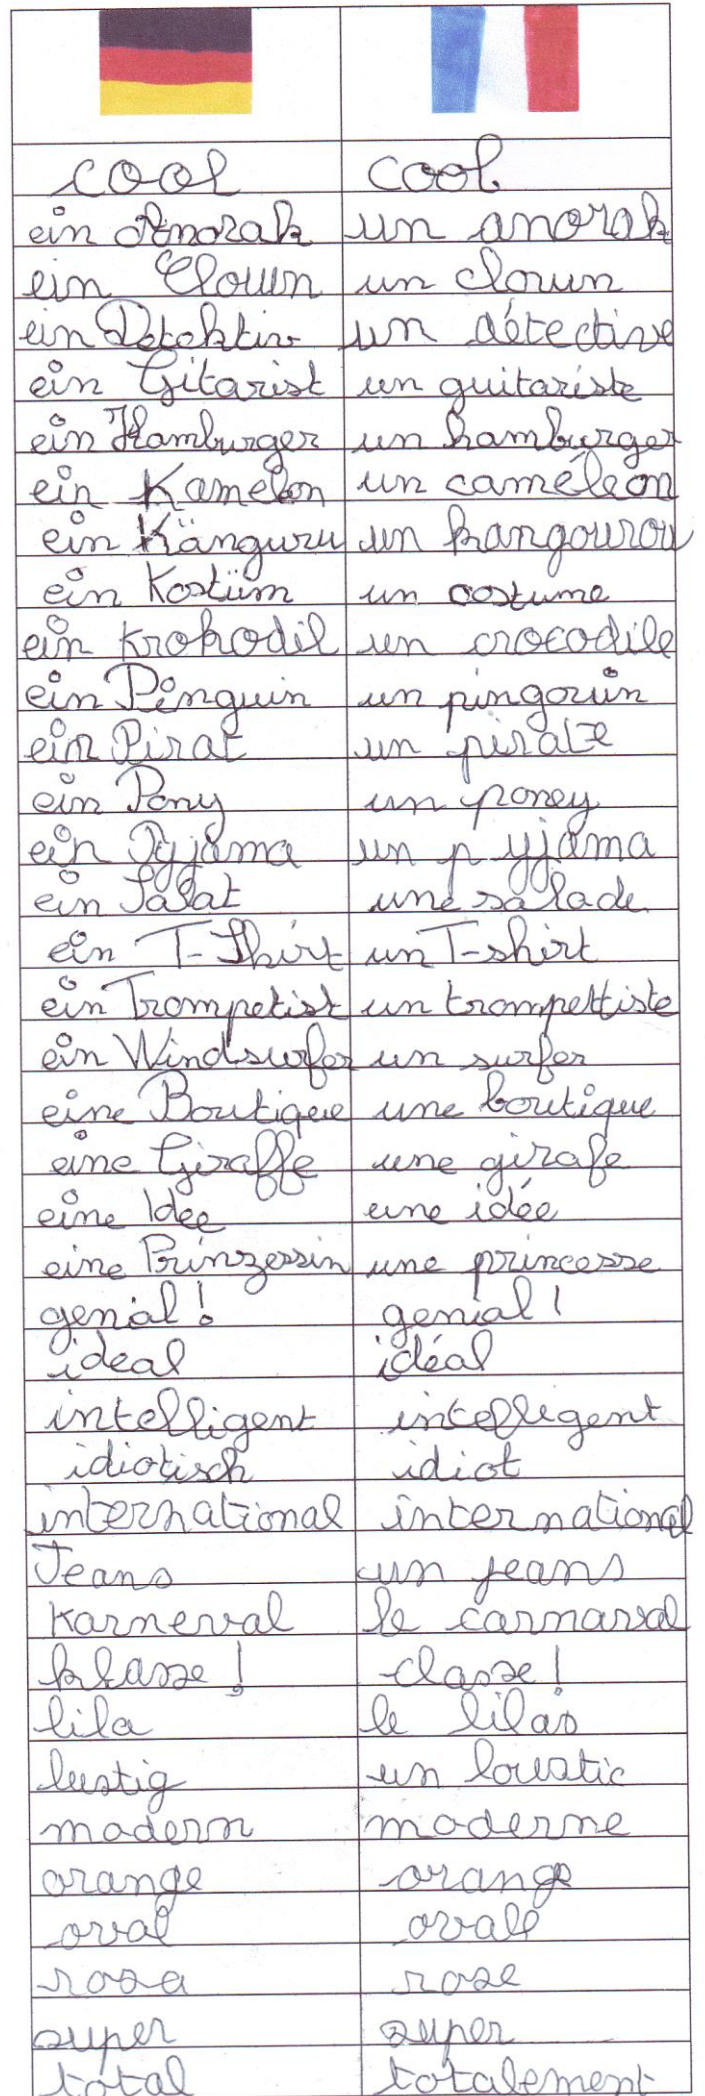 cool cool
ein Anorak un anorak
ein Clown un clown
ein Detektiv un détective
ein Gitarist un guitariste
ein Hamburger un hamburger
ein Kameleon un caméléon
ein Känguru un kangourou
ein Kostüm un costume
ein krokodil un crocodile
ein Pinguin un pingouin
ein Pirat un pirate
ein Pony un poney
ein Pyjama un pyjama
ein Salat une salade
ein T-Shirt un T-shirt
ein Trompetist un trompettiste
ein Windsurfer un surfer
eine Boutique une boutique
eine Giraffe une girafe
eine Idee une idée
eine Prinzessin une princesse
genial ! genial !
ideal idéal
intelligent intelligent
idiotisch idiot
international international
Jeans un jeans
Karneval le carnaval
klasse ! classe !
lila le lilas
lustig un loustic
modern moderne
orange orange
oval ovale
rosa rose
super super
total totalement